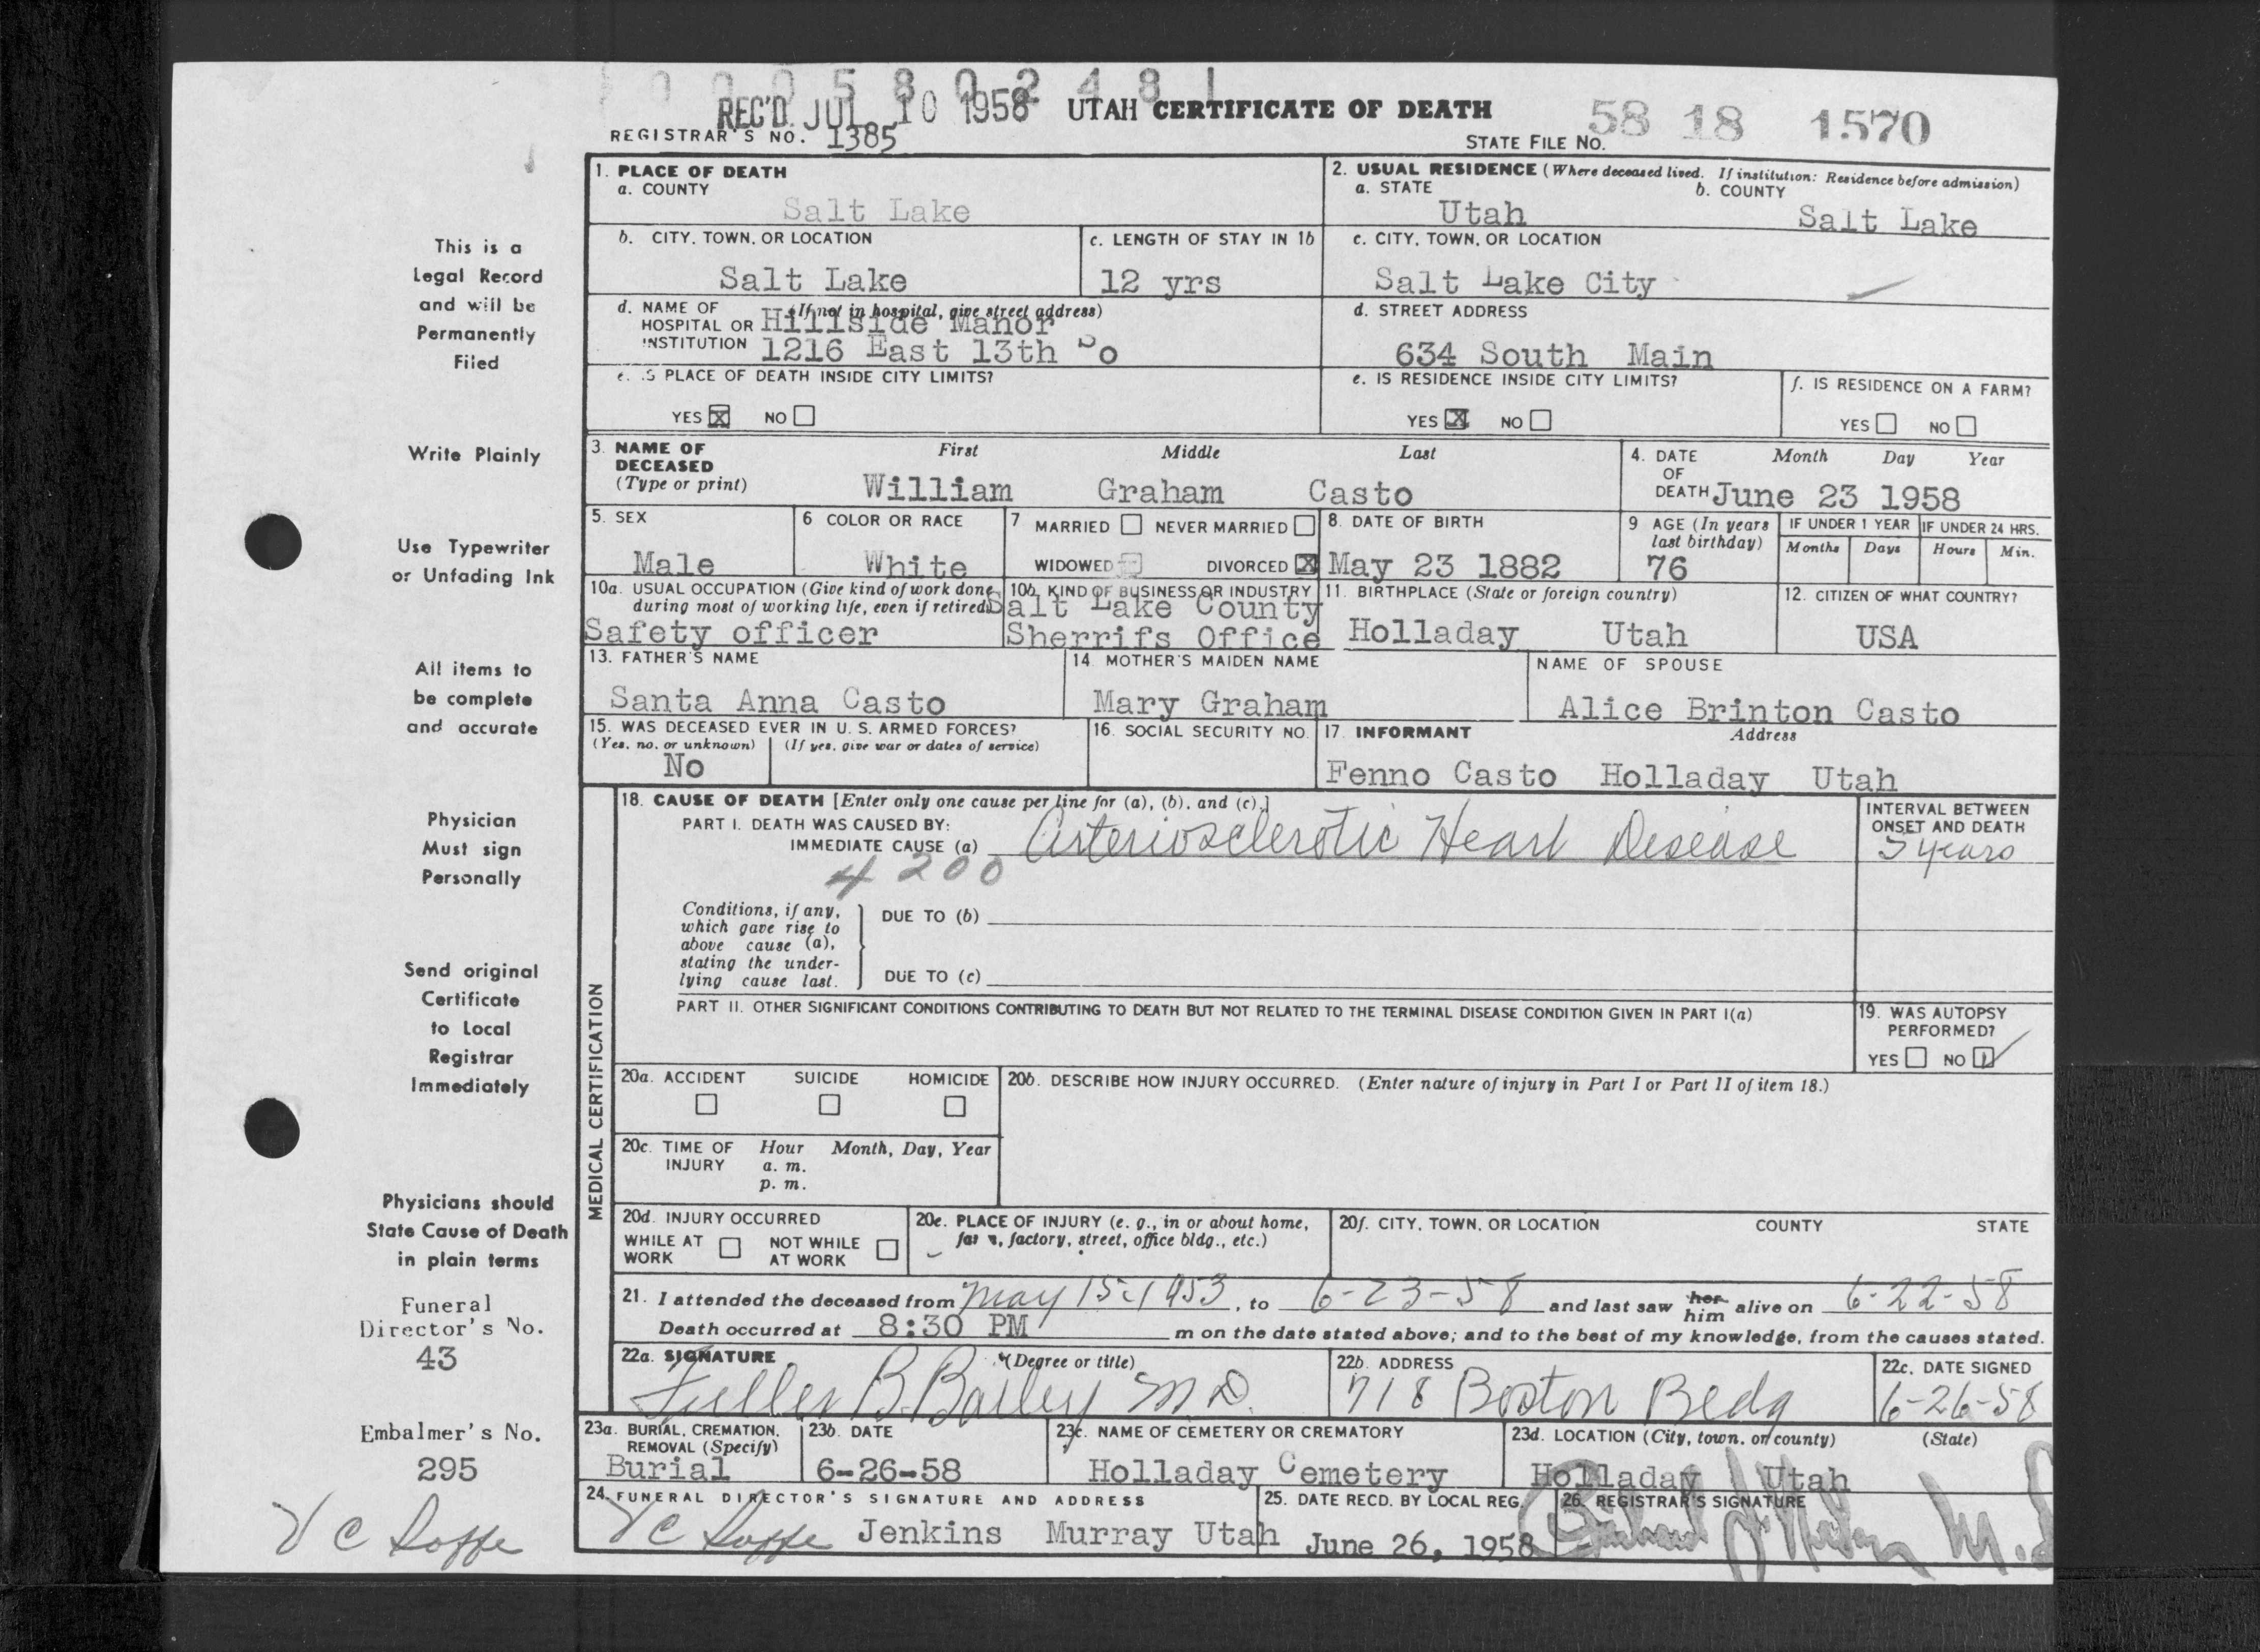 0 0 0 5 8 0 2 4 8 1
REC'D JUL 10 1958 UTAH CERTIFICATE OF DEATH 58 18 1570
REGISTRAR'S NO. 1385 STATE FILE NO.
1. PLACE OF DEATH
a. COUNTY
Salt Lake
2. USUAL RESIDENCE (Where deceased lived. If institution: Residence before admission)
a. STATE b. COUNTY
Utah Salt Lake
b. CITY, TOWN, OR LOCATION
Salt Lake
c. LENGTH OF STAY IN 1b
12 yrs
c. CITY, TOWN, OR LOCATION
Salt Lake City
d. NAME OF (If not in hospital, give street address)
HOSPITAL OR Hillside Manor
INSTITUTION 1216 East 13th So
d. STREET ADDRESS
634 South Main
e. IS PLACE OF DEATH INSIDE CITY LIMITS?
YES X NO
e. IS RESIDENCE INSIDE CITY LIMITS?
YES X NO
f. IS RESIDENCE ON A FARM?
YES NO
3. NAME OF First Middle Last
DECEASED
(Type or print) William Graham Casto
4. DATE Month Day Year
OF
DEATH June 23 1958
5. SEX
Male
6 COLOR OR RACE
White
7 MARRIED NEVER MARRIED
WIDOWED DIVORCED X
8. DATE OF BIRTH
May 23 1882
9 AGE (In years
last birthday)
76
IF UNDER 1 YEAR IF UNDER 24 HRS.
Months Days Hours Min.
10a. USUAL OCCUPATION (Give kind of work done
during most of working life, even if retired)
Safety officer
10b. KIND OF BUSINESS OR INDUSTRY
Salt Lake County
Sherrifs Office
11. BIRTHPLACE (State or foreign country)
Holladay Utah
12. CITIZEN OF WHAT COUNTRY?
USA
13. FATHER'S NAME
Santa Anna Casto
14. MOTHER'S MAIDEN NAME
Mary Graham
NAME OF SPOUSE
Alice Brinton Casto
15. WAS DECEASED EVER IN U. S. ARMED FORCES?
(Yes, no, or unknown) (If yes, give war or dates of service)
No
16. SOCIAL SECURITY NO.
17. INFORMANT Address
Fenno Casto Holladay Utah
MEDICAL CERTIFICATION
18. CAUSE OF DEATH [Enter only one cause per line for (a), (b), and (c).]
PART I. DEATH WAS CAUSED BY:
IMMEDIATE CAUSE (a) Arteriosclerotic Heart Disease
4200
INTERVAL BETWEEN
ONSET AND DEATH
5 years
Conditions, if any,
which gave rise to
above cause (a),
stating the under-
lying cause last.
DUE TO (b)
DUE TO (c)
PART II. OTHER SIGNIFICANT CONDITIONS CONTRIBUTING TO DEATH BUT NOT RELATED TO THE TERMINAL DISEASE CONDITION GIVEN IN PART I(a)
19. WAS AUTOPSY
PERFORMED?
YES NO ✓
20a. ACCIDENT SUICIDE HOMICIDE
20b. DESCRIBE HOW INJURY OCCURRED. (Enter nature of injury in Part I or Part II of item 18.)
20c. TIME OF Hour Month, Day, Year
INJURY a. m.
p. m.
20d. INJURY OCCURRED
WHILE AT NOT WHILE
WORK AT WORK
20e. PLACE OF INJURY (e. g., in or about home,
farm, factory, street, office bldg., etc.)
20f. CITY, TOWN, OR LOCATION COUNTY STATE
21. I attended the deceased from May 15, 1953, to 6-23-58 and last saw her him alive on 6-22-58
Death occurred at 8:30 PM m on the date stated above; and to the best of my knowledge, from the causes stated.
22a. SIGNATURE (Degree or title)
Fuller B. Bailey MD.
22b. ADDRESS
718 Boston Bldg
22c. DATE SIGNED
6-26-58
23a. BURIAL, CREMATION,
REMOVAL (Specify)
Burial
23b. DATE
6-26-58
23c. NAME OF CEMETERY OR CREMATORY
Holladay Cemetery
23d. LOCATION (City, town, or county) (State)
Holladay Utah
24. FUNERAL DIRECTOR'S SIGNATURE AND ADDRESS
Jenkins Murray Utah
25. DATE RECD. BY LOCAL REG.
June 26, 1958
26. REGISTRAR'S SIGNATURE
This is a
Legal Record
and will be
Permanently
Filed
Write Plainly
Use Typewriter
or Unfading Ink
All items to
be complete
and accurate
Physician
Must sign
Personally
Send original
Certificate
to Local
Registrar
Immediately
Physicians should
State Cause of Death
in plain terms
Funeral
Director's No.
43
Embalmer's No.
295